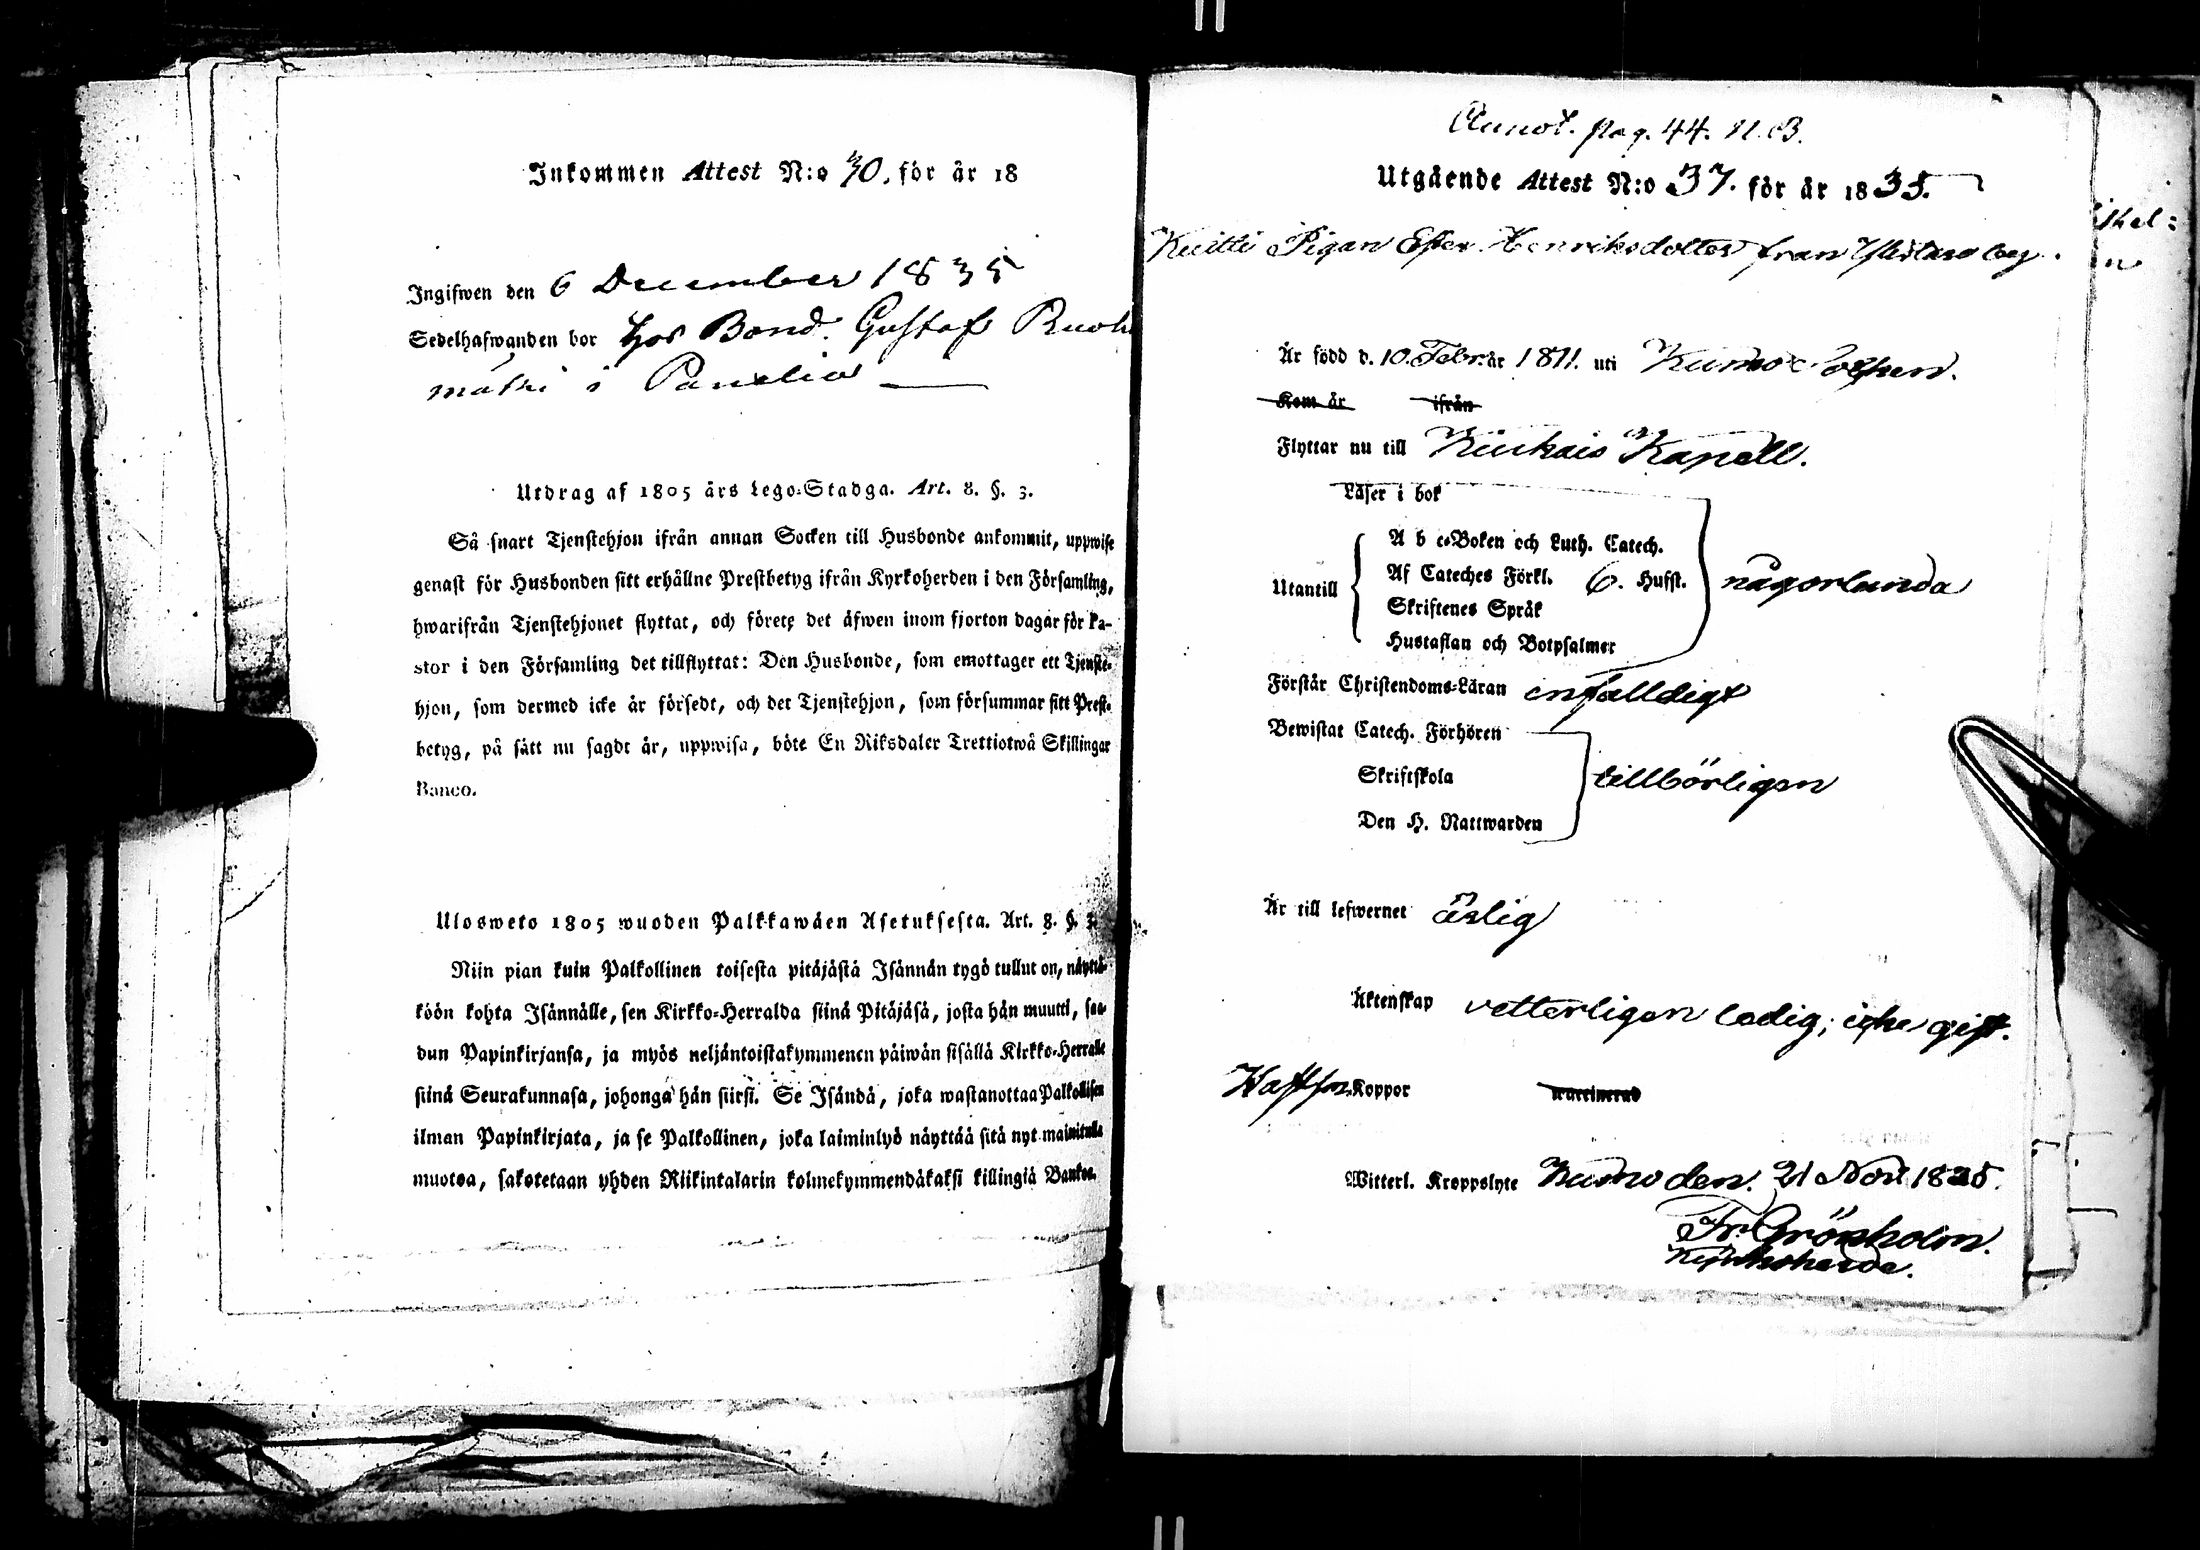 Inkommen Attest N:o 70. för år 18
Ingifwen den 6 December 1835
Sedelhafwanden bor hos Bond. Gustaf
mäki i Panelia
Utdrag af 1805 års Lego-Stadga. Art. 8. §. 3.
Så snart Tjenstehjon ifrån annan Socken till Husbonde ankommit, uppwise
genast för Husbonden sitt erhållne Prestbetyg ifrån Kyrkoherden i den Församling,
hwarifrån Tjenstehjonet flyttat, och förete det äfwen inom fjorton dagar för Pa-
stor i den Församling det tillflyttat: Den Husbonde, som emottager ett Tjenste-
hjon, som dermed icke är försedt, och det Tjenstehjon, som försummar sitt Prest-
betyg, på sätt nu sagdt är, uppwisa, böte En Riksdaler Trettiotwå Skillingar
Banco.
Ulosweto 1805 wuoden Palkkawäen Asetuksesta. Art. 8. §. 3.
Niin pian kuin Palkollinen toisesta pitäjästä Isännän tygö tullut on, näyttä-
köön kohta Isännälle, sen Kirkko-Herralda siinä Pitäjäsä, josta hän muutti, saa-
dun Papinkirjansa, ja myös neljäntoistakymmenen päiwän sisällä Kirkko-Herralle
siinä Seurakunnasa, johonga hän siirsi. Se Isändä, joka wastanottaa Palkollisen
ilman Papinkirjata, ja se Palkollinen, joka laiminlyö näyttää sitä nyt mainitulla
muotoa, sakotetaan yhden Riikintalarin kolmekymmendäkaksi killingiä Bankos.
Annot. pag. 44. N. B.
Utgående Attest N:o 37. för år 1835.
Pigan Ester Henriksdotter från by.
Är född d. 10. Febr. år 1811. uti Kumo Socken.
Kom år ifrån
Flyttar nu till Kiukais Kapell.
Läser i bok
A b c-Boken och Luth. Catech.
Utantill Af Cateches Förkl. 6. Hufst. någorlunda
Skriftenes Språk
Hustaflan och Botpsalmer
Förstår Christendoms-Läran enfaldigt
Bewistat Catech. Förhören
Skriftskola tillbörligen
Den H. Nattwarden
Är till lefwernet ärlig
Äktenskap vetterligen ledig, icke gift.
Haft Koppor Vaccinerad
Witterl. Kroppslyte Kumo den 21 Nov. 1835.
Fr. Grönholm.
Kyrkoherde.